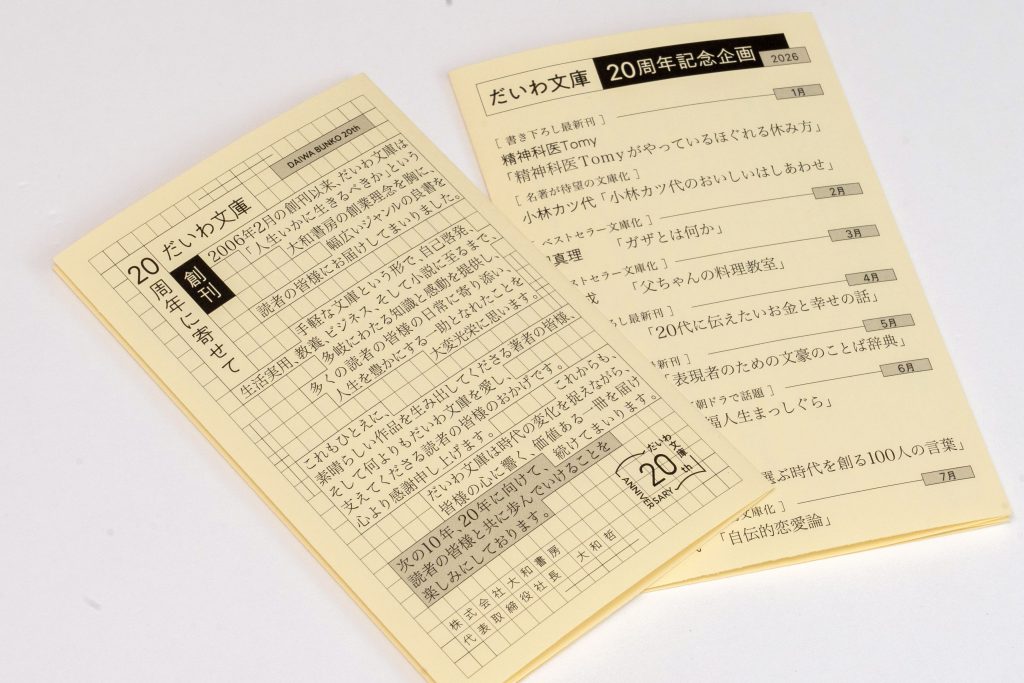 DAIWA BUNKO 20th
だいわ文庫
創刊
20周年に寄せて
2006年2月の創刊以来、だいわ文庫は
「人生いかに生きるべきか」という
大和書房の創業理念を胸に、
幅広いジャンルの良書を
読者の皆様にお届けしてまいりました。
手軽な文庫という形で、自己啓発、
生活実用、教養、ビジネス、そして小説に至るまで、
多岐にわたる知識と感動を提供し、
多くの読者の皆様の日常に寄り添い、
人生を豊かにする一助となれたことを
大変光栄に思います。
これもひとえに、
素晴らしい作品を生み出してくださる著者の皆様、
そして何よりもだいわ文庫を愛し、
支えてくださる読者の皆様のおかげです。
心より感謝申し上げます。
これからも、
だいわ文庫は時代の変化を捉えながら、
皆様の心に響く、価値ある一冊を届け
続けてまいります。
次の10年、20年に向けて、
読者の皆様と共に歩んでいけることを
楽しみにしております。
株式会社大和書房
代表取締役社長 大和哲
だいわ文庫
20th
ANNIVERSARY
だいわ文庫 20周年記念企画 2026
1月
[ 書き下ろし最新刊 ]
精神科医Tomy
「精神科医Tomyがやっているほぐれる休み方」
2月
[ 名著が待望の文庫化 ]
小林カツ代「小林カツ代のおいしいはしあわせ」
3月
ベストセラー文庫化 ]
真理 「ガザとは何か」
4月
ストセラー文庫化 ]
「父ちゃんの料理教室」
5月
ろし最新刊 ]
「20代に伝えたいお金と幸せの話」
6月
最新刊 ]
「表現者のための文豪のことば辞典」
朝ドラで話題 ]
福人生まっしぐら」
7月
選ぶ時代を創る100人の言葉」
文庫化 ]
「自伝的恋愛論」